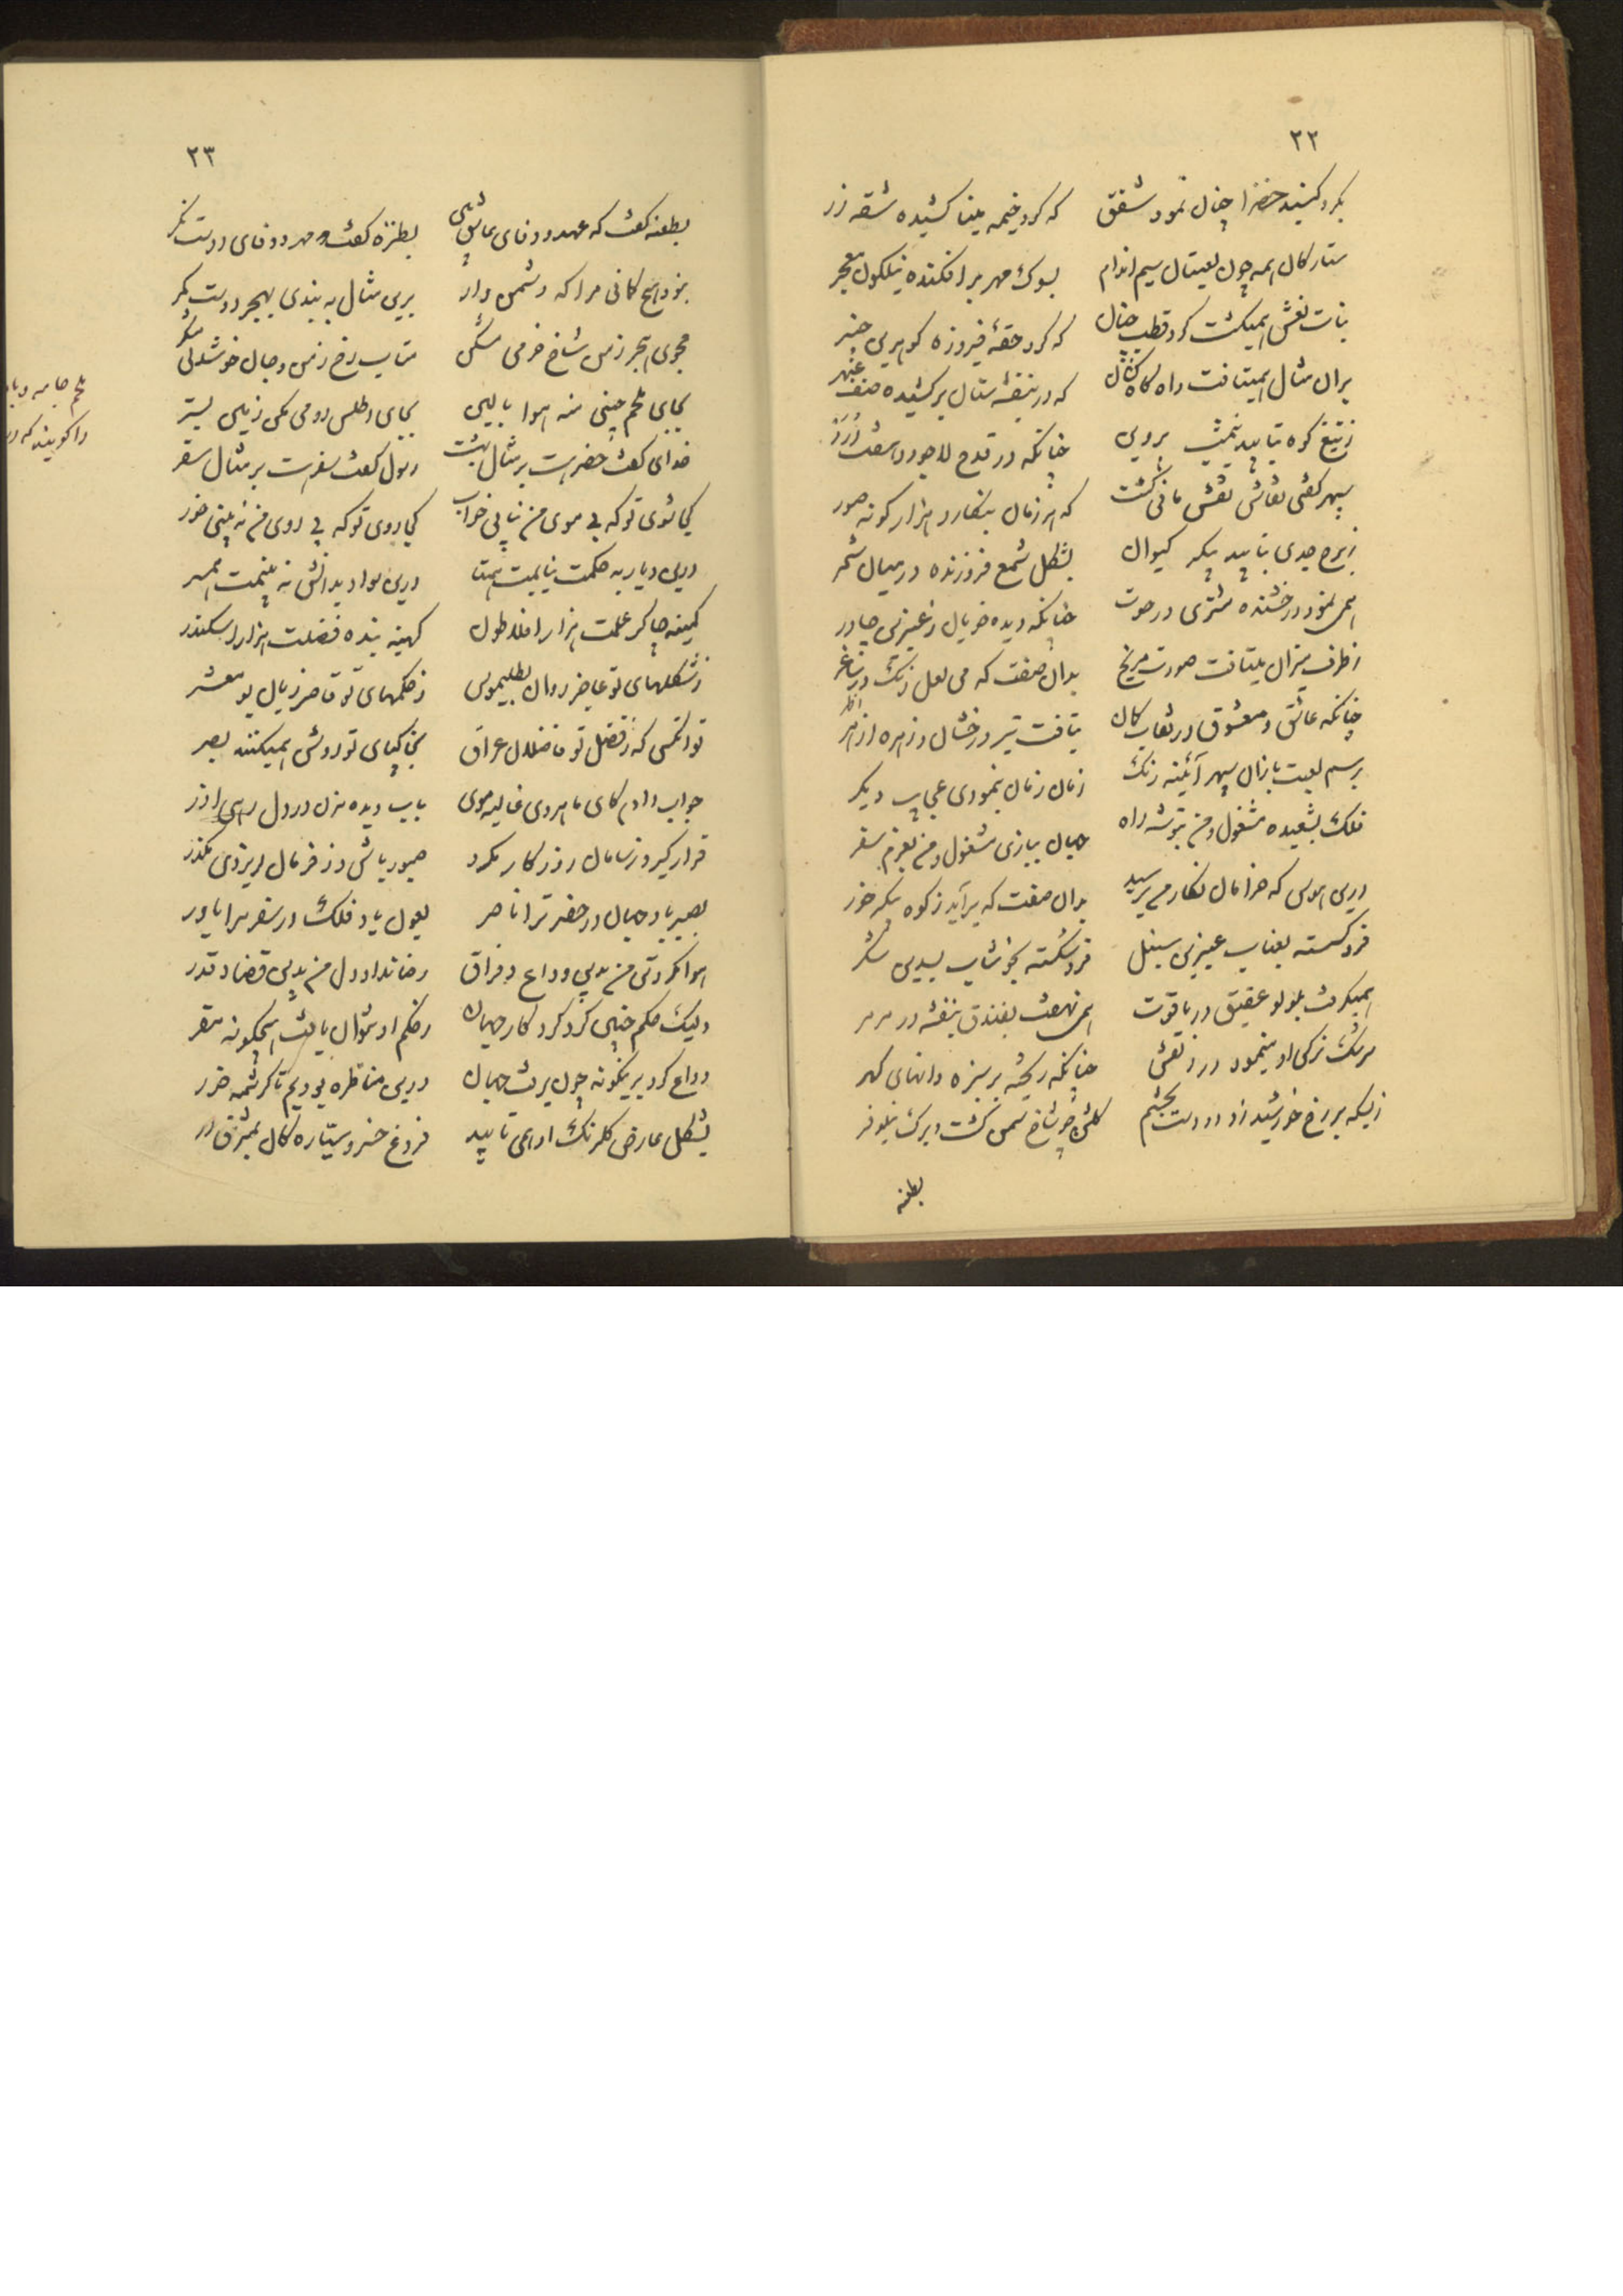 ۲۲
بگرد گنبد خضرا چنان نمود شفق که گرد خیمه مینا کشیده شقه زر
ستارگان همه چون لعبتان سیم اندام بسوک مهر برافکنده نیلگون معجر
بنات نعش همیگشت گرد قطب چنان که گرد حقهٔ فیروزه گوهرین چنبر
بران مثال همیتافت راه کاه‌کشان که در بنفشه ستان برکشیده صف عبهر
ز تیغ کوه بتابید نیمشب پروین چنانکه در قدح لاجورد هفت درر
سپهر گفتی نقاش نقش مانی گشت که هر زمان بنگارد هزار گونه صور
ز برج جدی بتابید پیکر کیوان بشکل شمع فروزنده در میان شمر
همی نمود درخشنده مشتری در حوت چنانکه دیده خوبان ز عنبرین چادر
ز طرف میزان میتافت صورت مریخ بدان صفت که می لعل رنگ در ساغر
چنانکه عاشق و معشوق در نقاب کمان بتافت تیر درخشان و زهره ازهر
برسم لعبت بازان سپهر آئینه رنگ زمان زمان بنمودی عجایب دیگر
فلک بشعبده مشغول و من بتوشه راه جهان ببازی مشغول و من بعزم سفر
درین هوس که خرامان نگار من برسید بدان صفت که برآید ز کوه پیکر خور
فرو گسسته بعناب عنبرین سنبل فرو شکسته بخوشاب بسدین شکر
همیگرفت بلولو عقیق در یاقوت همی نهفت بفندق بنفشه در مرمر
سرشک نرگس او مینمود در زلفش چنانکه ریخته بر سبزه دانهای گهر
زبسکه بر رخ خورشید زد دو دست بخشم گلش چو شاخ سمن گشت و برگ نیلوفر
بطعنه
۲۳
بطعنه گفت که عهد و وفای عاشق بین بطنزه گفت و مهر و وفای دوست نگر
نبود هیچ گمانی مرا که دشمن وار برین مثال به بندی بهجر دوست کمر
مجوی هجر ز من شاخ خرمی مشکن متاب رخ ز من و جان خوشدلی مشکر
بجای ملحم چینی منه هوا بالین بجای اطلس رومی مکن زمین بستر
خدای گفت حضر هست بر مثال بهشت رسول گفت سفر هست بر مثال سقر
کجا شوی تو که بی موی من نیابی خواب کجا روی تو که بی روی من نه بینی خور
درین دیار به حکمت نیابمت همتا درین سواد بدانش نه بینمت همسر
کمینه چاکر علمت هزار افلاطون کهینه بنده فضلت هزار اسکندر
ز شکلهای تو عاجز روان بطلیموس ز حکمهای تو قاصر زبان بو معشر
تو آنکسی که ز فضل تو فاضلان عراق بخاکپای تو روشن همیکنند بصر
جواب دادم کای ماهروی غالیه موی بآب دیده مزن در دل رهی آذر
قرار گیر و ز سامان روزگار مگرد صبور باش و ز فرمان ایزدی مگذر
بصبر باد جهان در حضر ترا ناصر بعون باد فلک در سفر مرا یاور
هوا نکرد تن من بدین وداع و فراق رضا نداد دل من بدین قضا و قدر
ولیک حکم چنین کرد کردگار جهان ز حکم او نتوان یافت هیچگونه مفر
وداع کرد برینگونه چون برفت جهان درین مناظره بودیم تا کرشمه خور
بشکل عارض گلرنگ او همی تابید فروغ خسرو سیارگان بمشرق در
ملحم جامه
را گویند که در